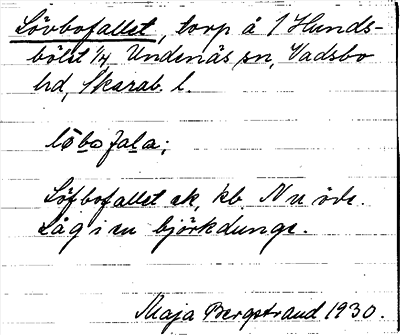 Lövbofallet, torp å 1 Hunds-
bölet 1/4, Undenäs sn, Vadsbo
hd, Skarab. l.
löbofala;
Löfbofallet ek, kb. Nu öde.
Låg i en björkdunge.
Maja Bergstrand 1930.